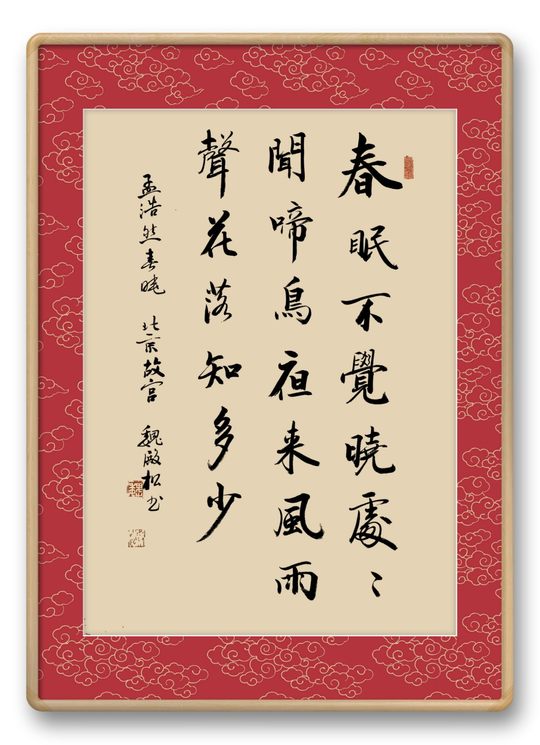 春眠不覺曉處〻
聞啼鳥夜来風雨
聲花落知多少
孟浩然春曉 北京故宮 魏殿松书